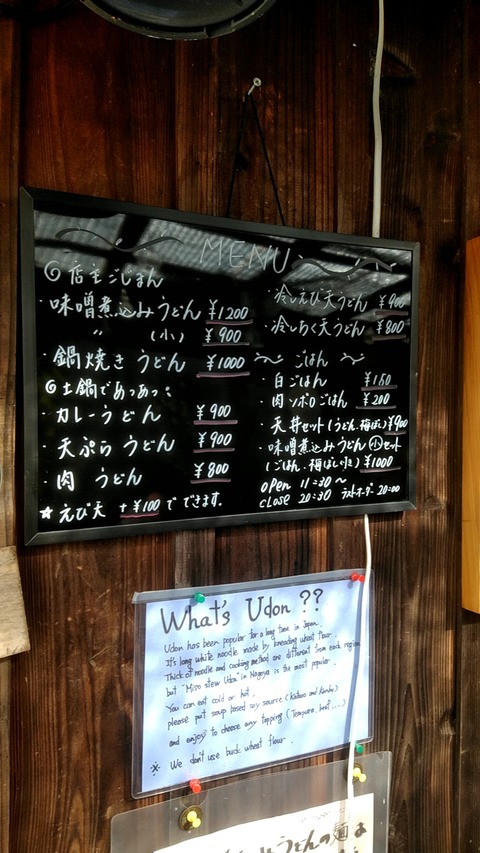 MENU
◎店主ごじまん
・味噌煮込みうどん ¥1200
〃 (小) ¥900
・鍋焼き うどん ¥1000
◎土鍋であつあつ
・カレーうどん ¥900
・天ぷらうどん ¥900
・肉 うどん ¥800
☆えび天 +¥100で できます.
・冷しえび天うどん ¥900
・冷しちく天うどん ¥800
〜 ごはん 〜
・白ごはん ¥150
・肉ソボロごはん ¥200
・天丼セット(うどん.梅ぼし) ¥900
・味噌煮込みうどん小セット
(ごはん.梅ぼし付き) ¥1000
open 11:30〜
close 20:30 ラストオーダー 20:00
What's Udon ??
Udon has been popular for a long time in Japan.
It's long white noodle made by kneading wheat flour.
Thick of noodle and cooking method are different from each region
but "Miso stew Udon" in Nagoya is the most popular.
You can eat cold or hot,
please put soup based soy source (Katsuo and Konbu)
and enjoy to choose any topping (Tempura, beef...)
※ We don't use buck wheat flour.
うどんの麺は